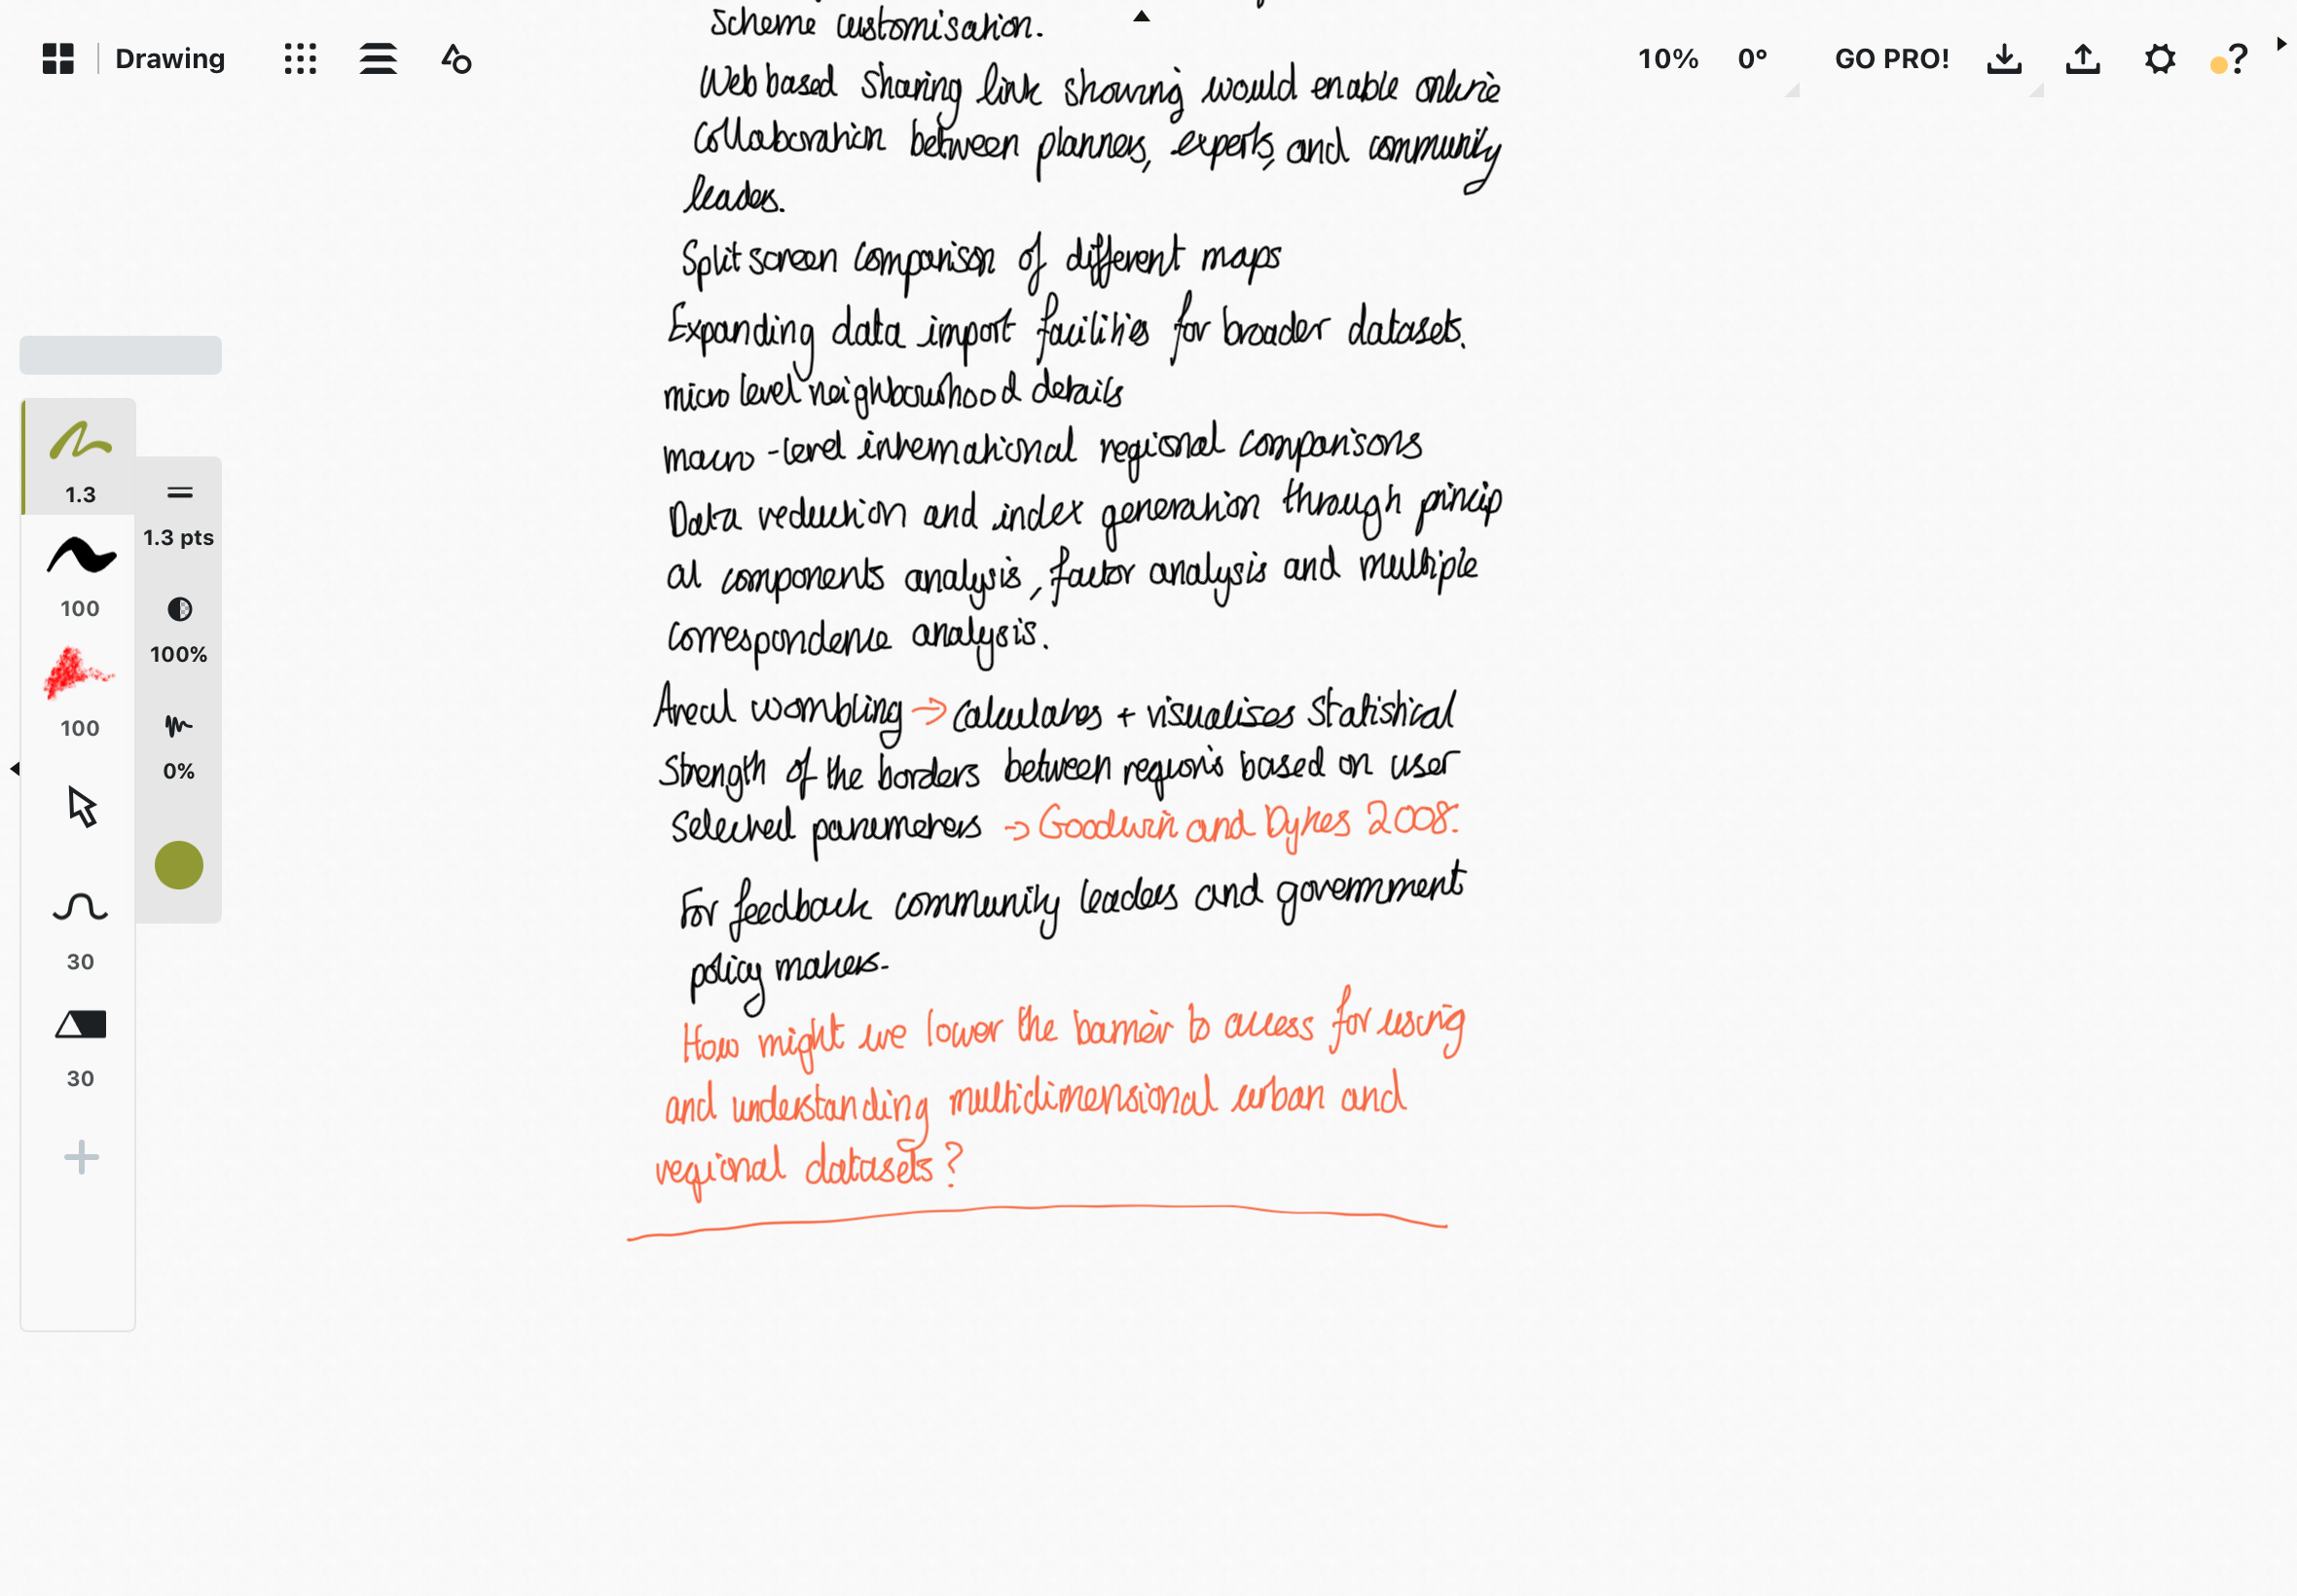 scheme customisation.
Drawing
10%
0°
GO PRO!
?
Web based sharing link showing would enable online
collaboration between planners, experts, and community
leaders.
Split screen comparison of different maps
Expanding data import facilities for broader datasets.
micro level neighbourhood details
macro-level international regional comparisons
Data reduction and index generation through princip
al components analysis, factor analysis and multiple
correspondence analysis.
Areal wombling → calculates + visualises statistical
strength of the borders between regions based on user
selected paremeters → Goodwin and Dykes 2008.
For feedback community leaders and government
policy makers.
How might we lower the barrier to access for using
and understanding multidimensional urban and
regional datasets?
1.3
1.3 pts
100
100%
100
0%
30
30